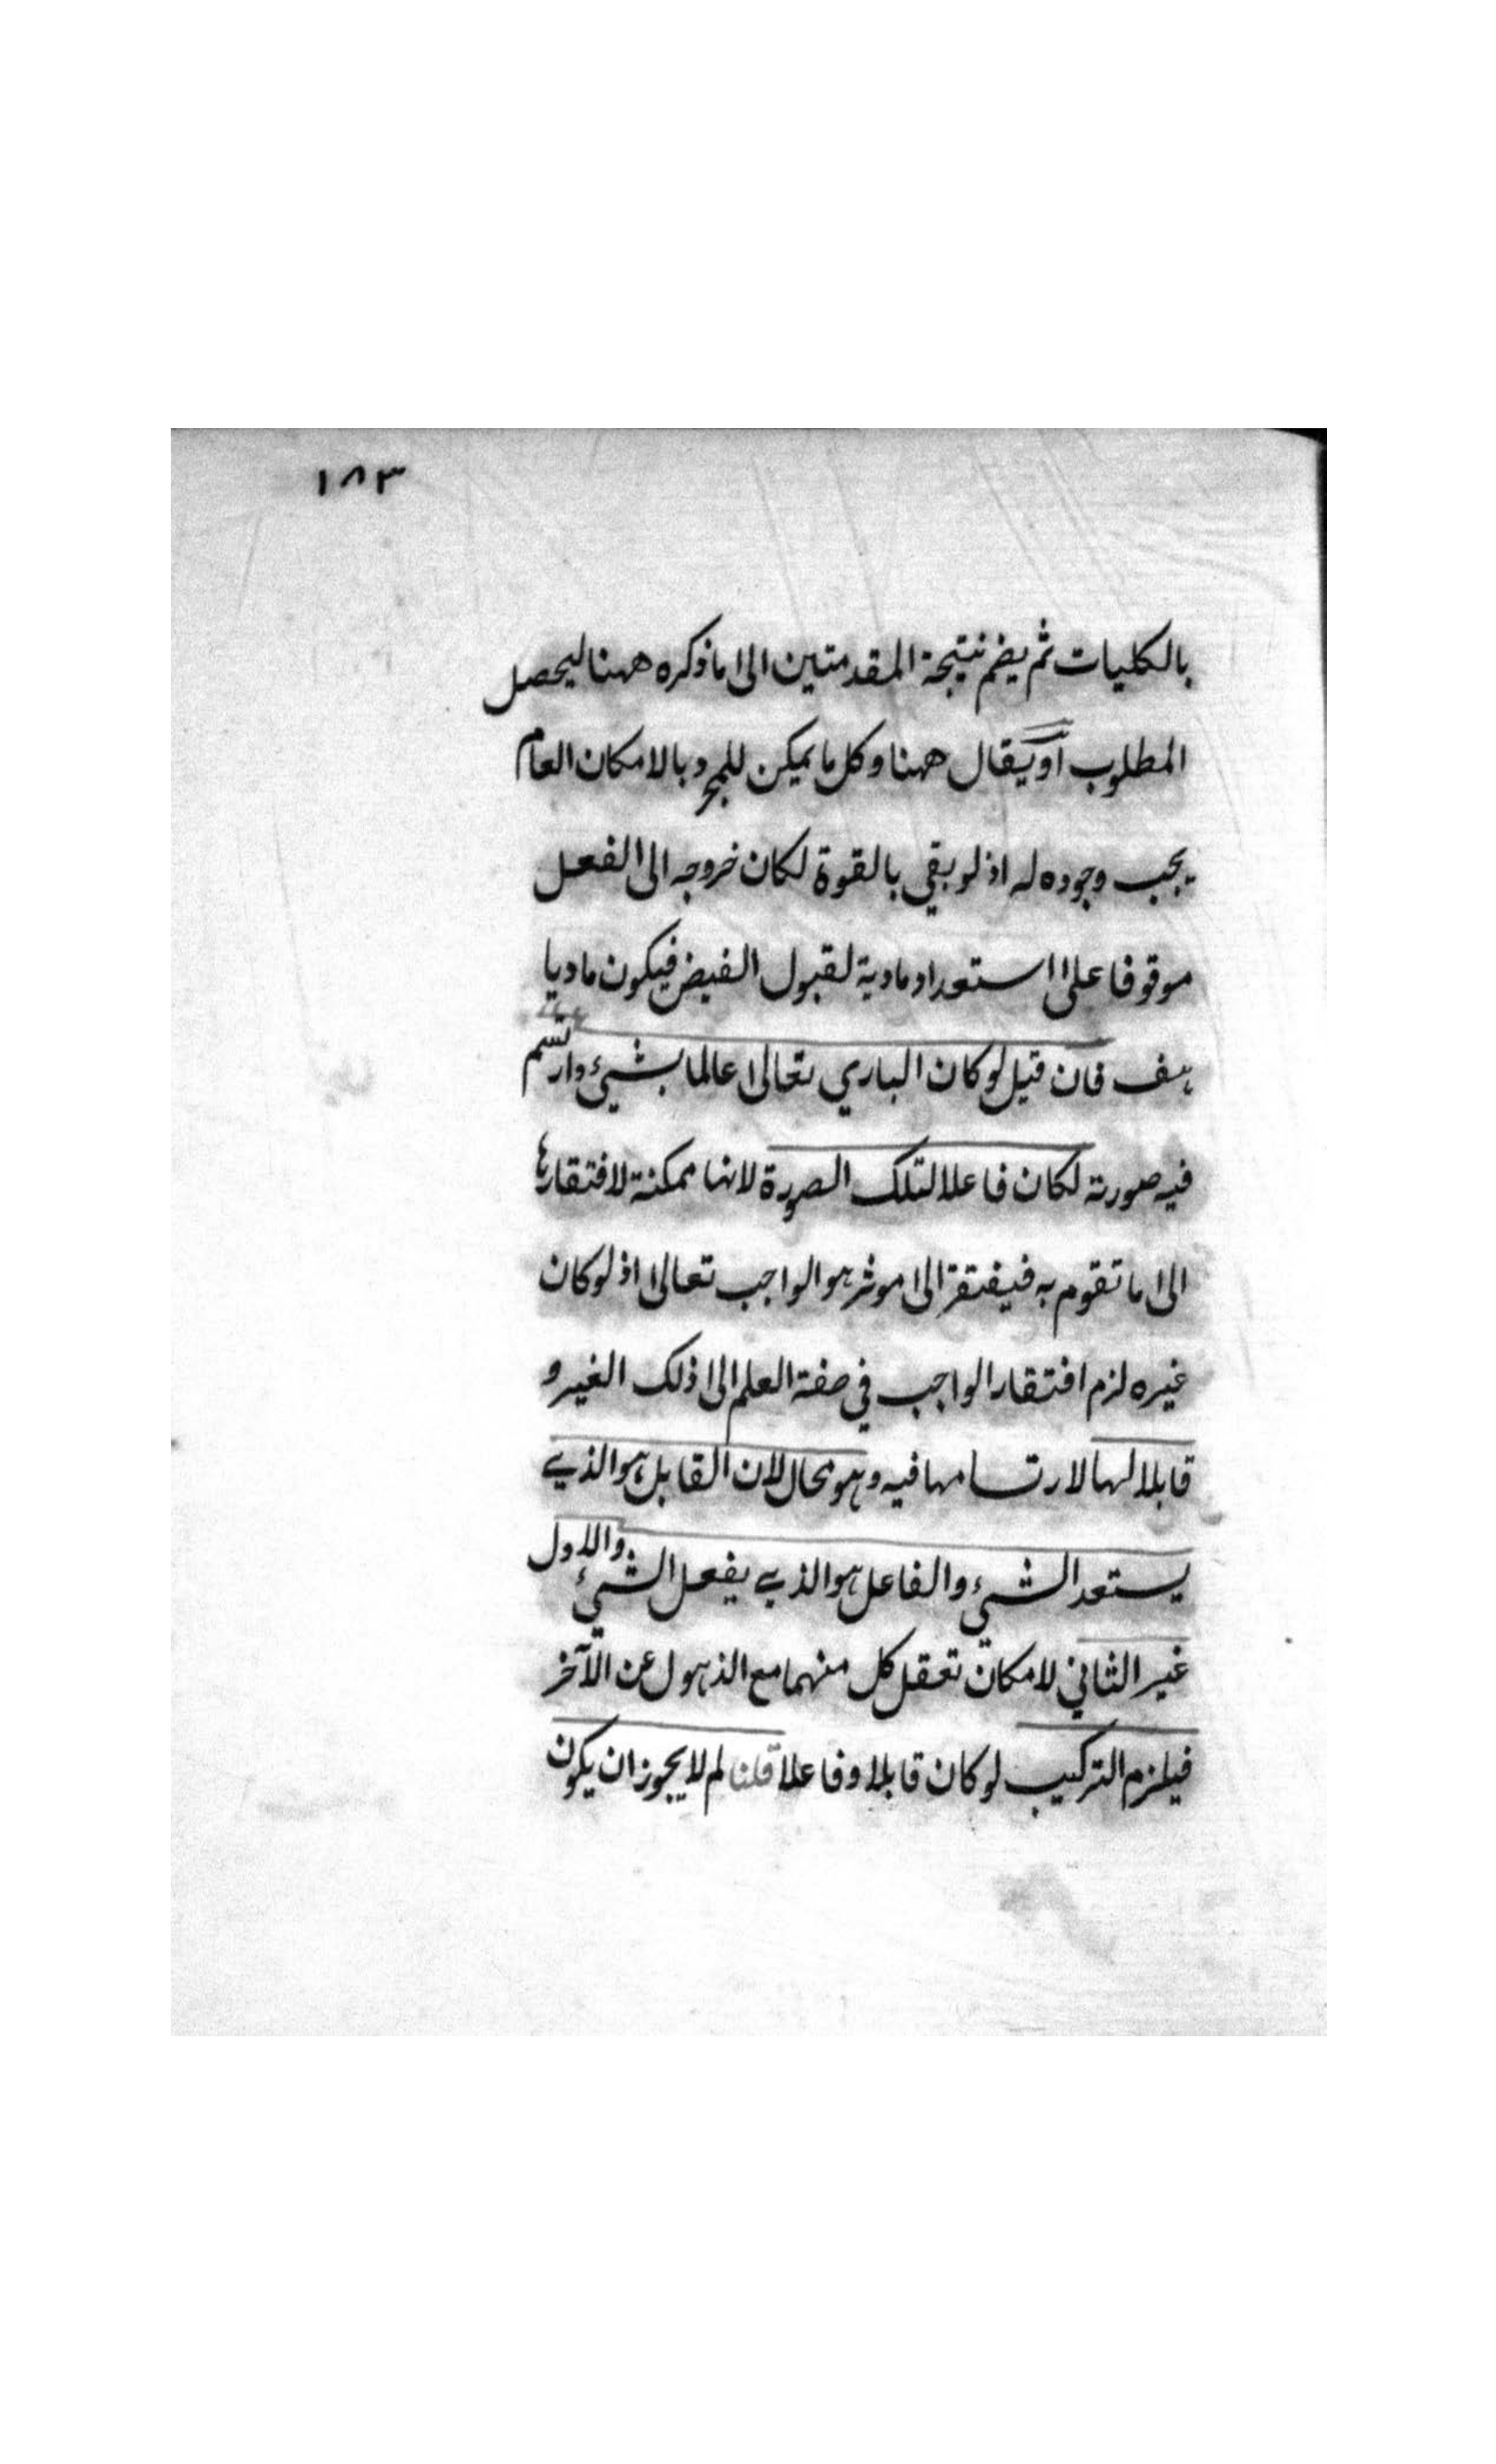 ١٨٣
بالكليات ثم يضم نتيجة المقدمتين الى ما ذكره ههنا ليحصل
المطلوب او يقال ههنا وكل ما يمكن للمجرد بالامكان العام
يجب وجوده له اذ لو بقي بالقوة لكان خروجه الى الفعل
موقوفا على استعداد مادية لقبول الفيض فيكون ماديا
هف فان قيل لو كان الباري تعالى عالما بشيء وارتسم
فيه صورته لكان فاعلا لتلك الصورة لانها ممكنة لافتقارها
الى ما تقوم به فيفتقر الى موثر هو الواجب تعالى اذ لو كان
غيره لزم افتقار الواجب في صفة العلم الى ذلك الغير و
قابلا لها لارتسامها فيه وهو محال لان القابل هو الذي
يستعد الشيء والفاعل هو الذي يفعل الشيء والاول
غير الثاني لامكان تعقل كل منهما مع الذهول عن الآخر
فيلزم التركيب لو كان قابلا وفاعلا قلنا لم لا يجوز ان يكون